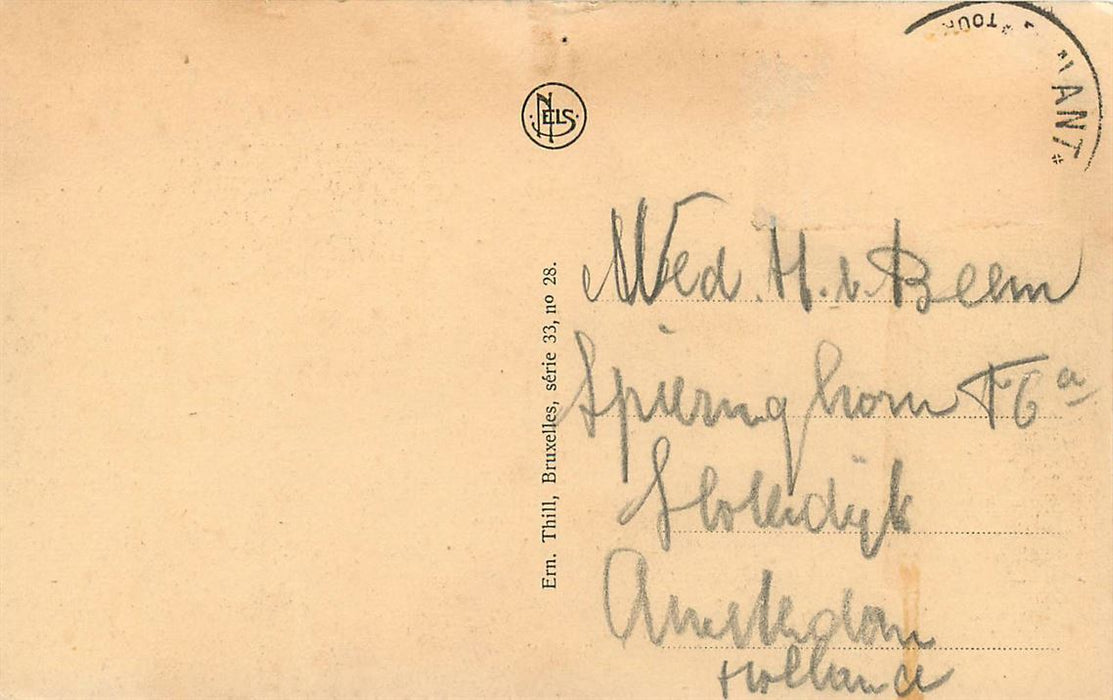 TOUR
MANT
NELS
Ern. Thill, Bruxelles, série 33, no 28.
Wed. H. v. Beem
Spieringhorn F6a
Sloterdijk
Amsterdam
Holland